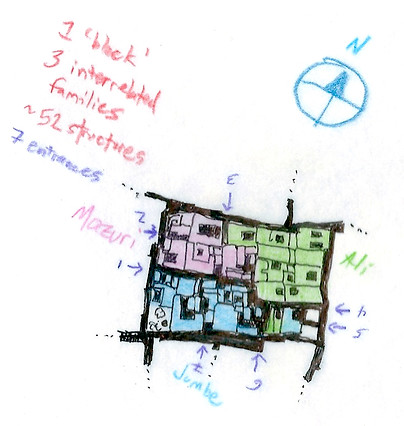 1 'block'
3 interrelated
families
~52 structures
7 entrances
N
3
Mazuri
2
1
Ali
4
5
7
6
Jumbe